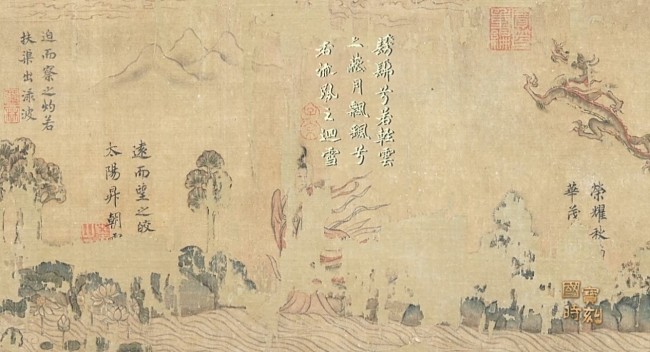 榮耀秋
華茂
髣髴兮若輕雲
之蔽月飄颻兮
若流風之迴雪
遠而望之皎
太陽昇朝
迫而察之灼若
扶渠出渌波
國寶
時刻